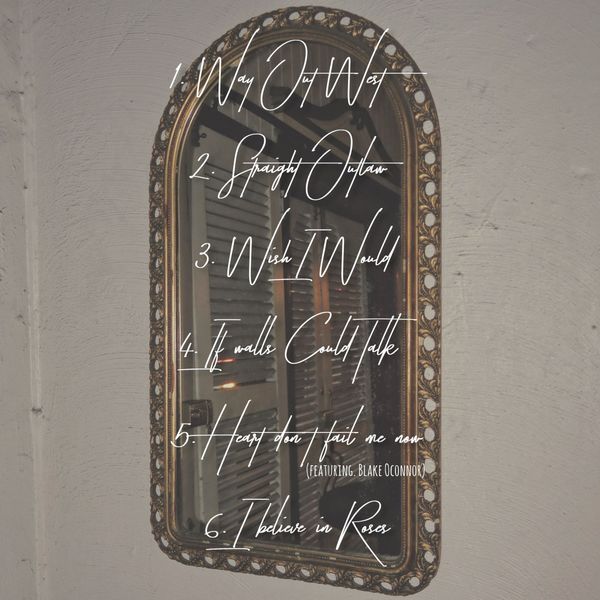 1 Way Out West
2. Straight Outlaw
3. Wish I Would
4. If walls Could Talk
5. Heart don't fail me now
(featuring. Blake Oconnor)
6. I believe in Roses